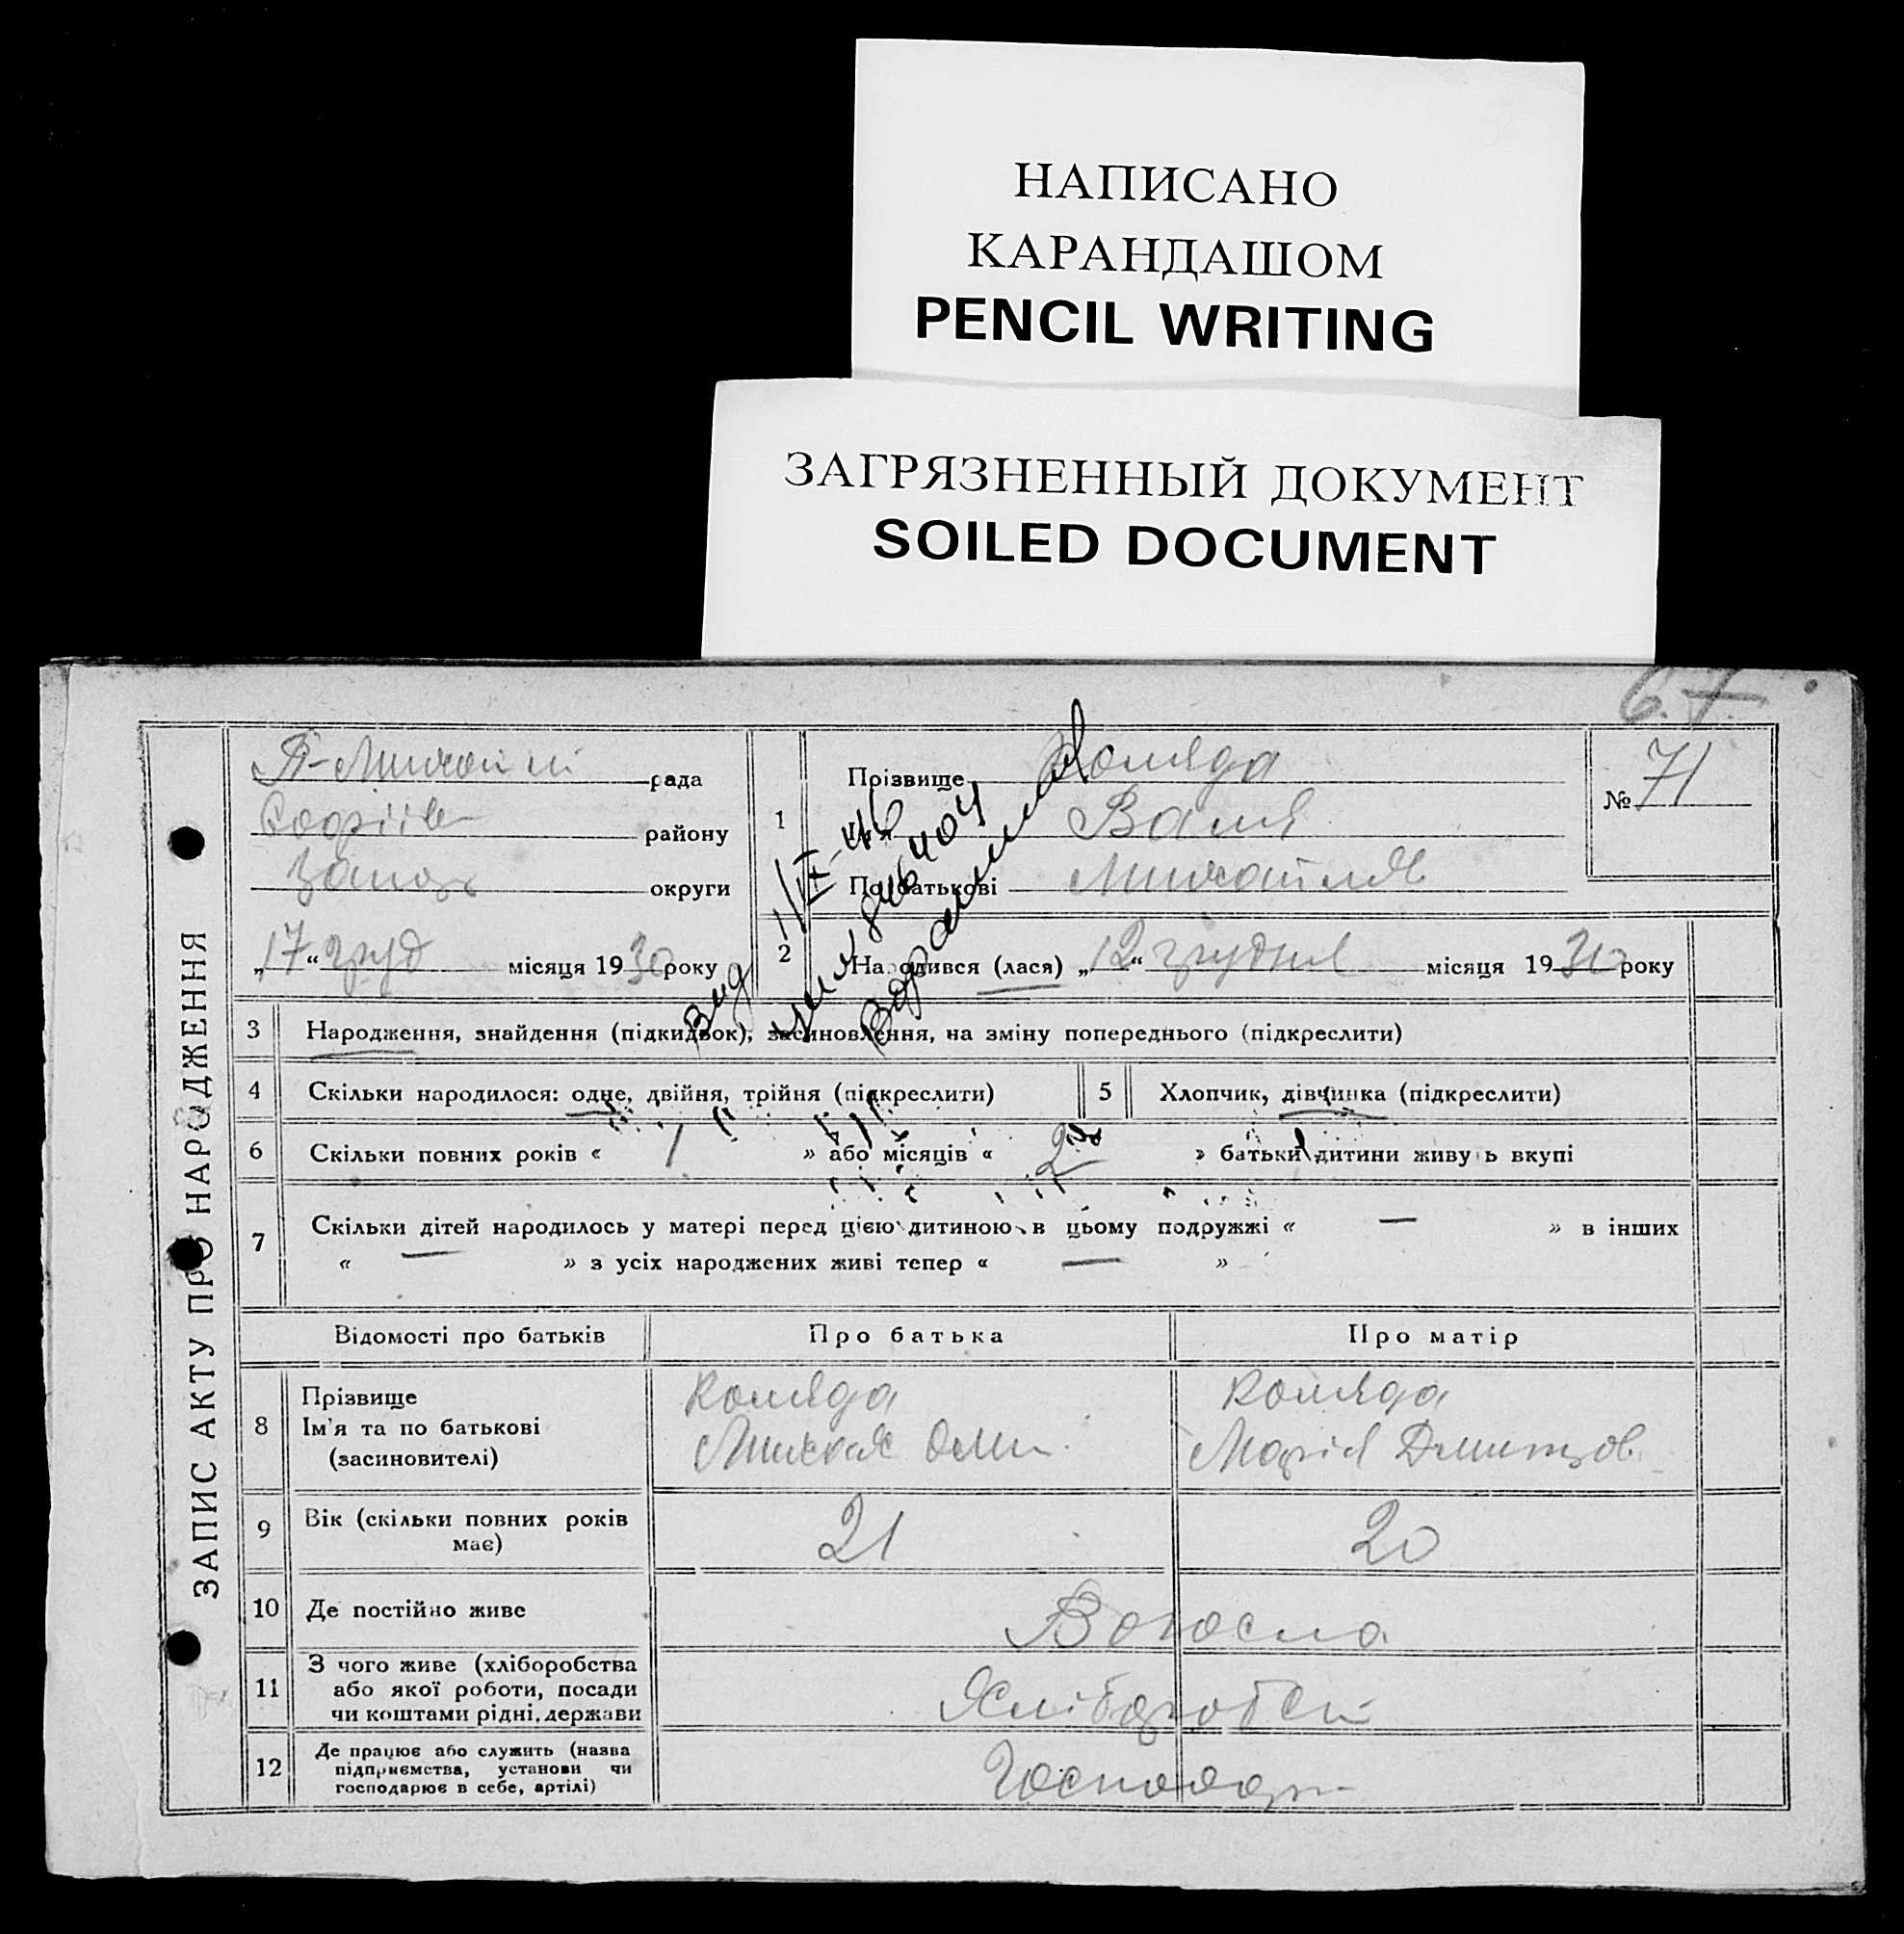 НАПИСАНО
КАРАНДАШОМ
PENCIL WRITING
ЗАГРЯЗНЕННЫЙ ДОКУМЕНТ
SOILED DOCUMENT
67
ЗАПИС АКТУ ПРО НАРОДЖЕННЯ
рада
району
округи
„17“ груд місяця 1930 року
1
Прізвище Коляда
Ім'я Валя
По батькові
№ 71
2
Народився (лася) „12“ грудня місяця 1930 року
3 Народження, знайдення (підкидьок), засиновлення, на зміну попереднього (підкреслити)
4 Скільки народилося: одне, двійня, трійня (підкреслити)
5 Хлопчик, дівчинка (підкреслити)
6 Скільки повних років « 1 » або місяців « 2 » батьки дитини живуть вкупі
7 Скільки дітей народилось у матері перед цією дитиною в цьому подружжі « — » в інших
« — » з усіх народжених живі тепер « — »
Відомості про батьків
Про батька
Про матір
8 Прізвище
Ім'я та по батькові
(засиновителі)
Коляда
Коляда
Марія Дмитров
9 Вік (скільки повних років
має)
21
20
10 Де постійно живе
11 З чого живе (хліборобства
або якої роботи, посади
чи коштами рідні, держави
Хлібороб
12 Де працює або служить (назва
підприємства, установи чи
господарює в себе, артілі)
Господар